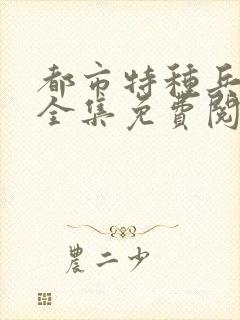 都市特种兵
全集免費閱
農二少